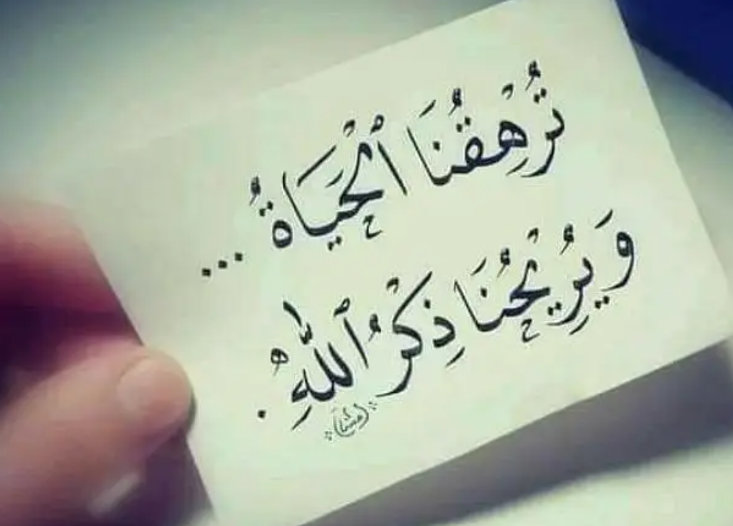 تُرْهِقُنَا ٱلْحَيَاةُ ...
وَيُرِيْحُنَا ذِكْرُ ٱللّٰهِ.